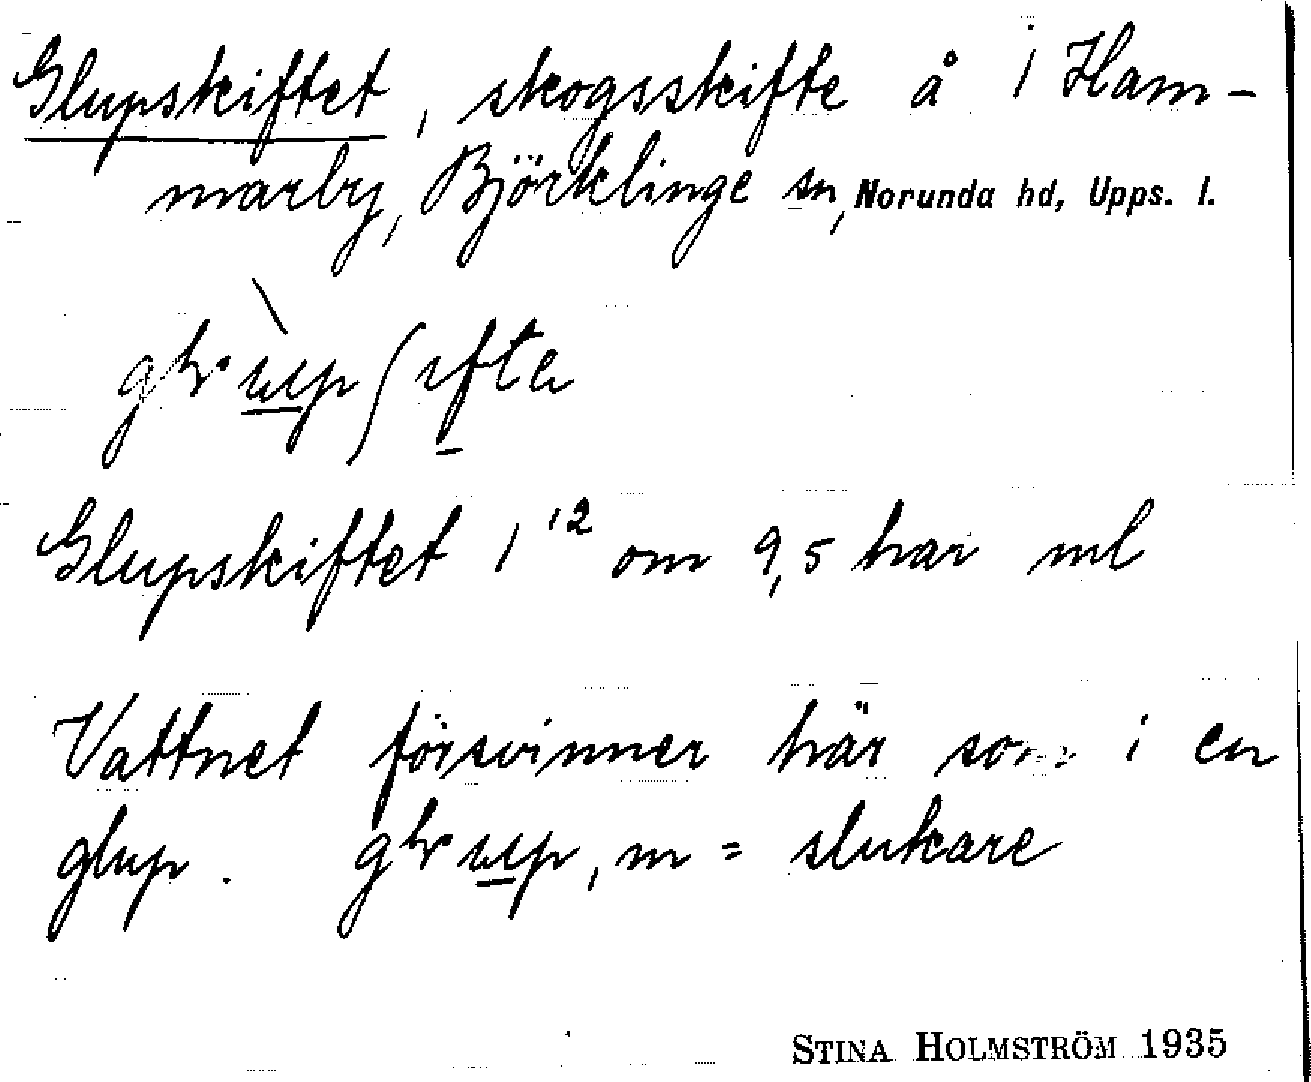 Glupskiftet, skogsskifte å 1 Ham-
marby, Björklinge sn, Norunda hd, Upps. l.
Glupskiftet 1¹² om 9,5 har ml
Vattnet försvinner här som i en
glup. , m = slukare
STINA HOLMSTRÖM 1935